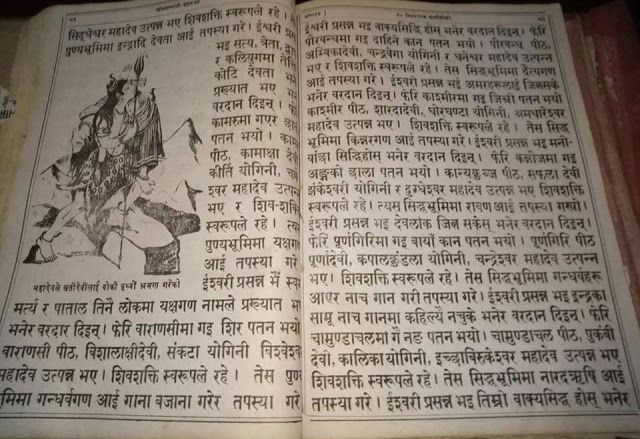 सिद्धेश्वर महादेव उत्पन्न भए शिवशक्ति स्वरूपले रहे । तेस
पुण्यभूमिमा इन्द्रादि देवता आई तपस्या गरे । ईश्वरी प्रसन्न
भइ मत्य, त्रेता,
र कलियुगमा
कोटि देवता
प्रख्यात भए
वरदान दिइन् ।
कामरुमा गएर
पतन भयो ।
पीठ, कामाक्षा देवी
कीर्ति योगिनी,
श्वर महादेव उत्पन्न
भए र शिव-शक्ति
स्वरूपले रहे ।
पुण्यभूमिमा यक्षगण
आई तपस्या गरे ।
ईश्वरी प्रसन्न भै
महादेवले सतीदेवीलाई बोकी पृथ्वी भ्रमण गरेको
मर्त्य र पाताल तिनै लोकमा यक्षगण नामले प्रख्यात भए
भनेर वरदार दिइन् । फेरि वाराणसीमा गइ शिर पतन भयो
वाराणसी पीठ, विशालाक्षीदेवी, संकटा योगिनी विश्वेश्वर
महादेव उत्पन्न भए । शिवशक्ति स्वरूपले रहे । तेस पुण्य
भूमिमा गन्धर्वगण आई गाना वजाना गरेर तपस्या गरे
ईश्वरी प्रसन्न भइ वाक्यसिद्धि होस् भनेर वरदान दिइन् । फेरि
पौरवन्धमा गइ दाहिने कान पतन भयो । पौरवन्ध पीठ,
अम्विकादेवी, चन्द्रवेमा योगिनी र धनेश्वर महादेव उत्पन्न
भए र शिवशक्ति स्वरूपले रहे । तेस सिद्धभूमिमा दैत्यगण
आई तपस्या गरे । ईश्वरी प्रसन्न भई अमरहरूलाई जितिसकेस्
भनेर वरदान दिइन् । फेरि काश्मीरमा गइ जिब्रो पतन भयो
काश्मीर पीठ, शारदादेवी, घोरघण्टा योगिनी, श्रमधारेश्वर
महादेव उत्पन्न भए । शिवशक्ति स्वरूपले रहे । तेस सिद्ध
भूमिमा किन्नरगण आई तपस्या गरे । ईश्वरी प्रसन्न भइ मनो-
वांछा सिद्धिहोस् भनेर वरदान दिइन् । फेरि कन्नोजमा गइ
अङ्गको छाला पतन भयो । कान्यकुब्ज पीठ, सफला देवी
झंकेश्वरी योगिनी र दुग्धेश्वर महादेव उत्पन्न भए । शिवशक्ति
स्वरूपले रहे । त्यस सिद्धभूमिमा रावण आई तपस्या गर्‍यो ।
ईश्वरी प्रसन्न भइ देवलोक जित्न सकेस् भनेर वरदान दिइन् ।
फेरि पूर्णगिरिमा गइ वायाँ कान पतन भयो । पूर्णगिरि पीठ
पूर्णादेवी, कपालकुंडला योगिनी, चन्द्रेश्वर महादेव उत्पन्न
भए । शिवशक्ति स्वरूपले रहे । तेस सिद्धभूमिमा गन्धर्वहरू
आएर नाच गान गरी तपस्या गरे । ईश्वरी प्रसन्न भइ इन्द्रका
सामू नाच गानमा कहिल्यै नचुके भनेर वरदान दिइन् । फेरि
चामुण्डाचलमा गै नङ पतन भयो । चामुण्डाचल पीठ,
देवी, कालिका योगिनी, महादेव उत्पन्न भए ।
शिवशक्ति स्वरूपले रहे । तेस सिद्धभूमिमा नारदऋषि आई
तपस्या गरे । ईश्वरी प्रसन्न भइ तिम्रो वाक्यसिद्ध होस् भनेर